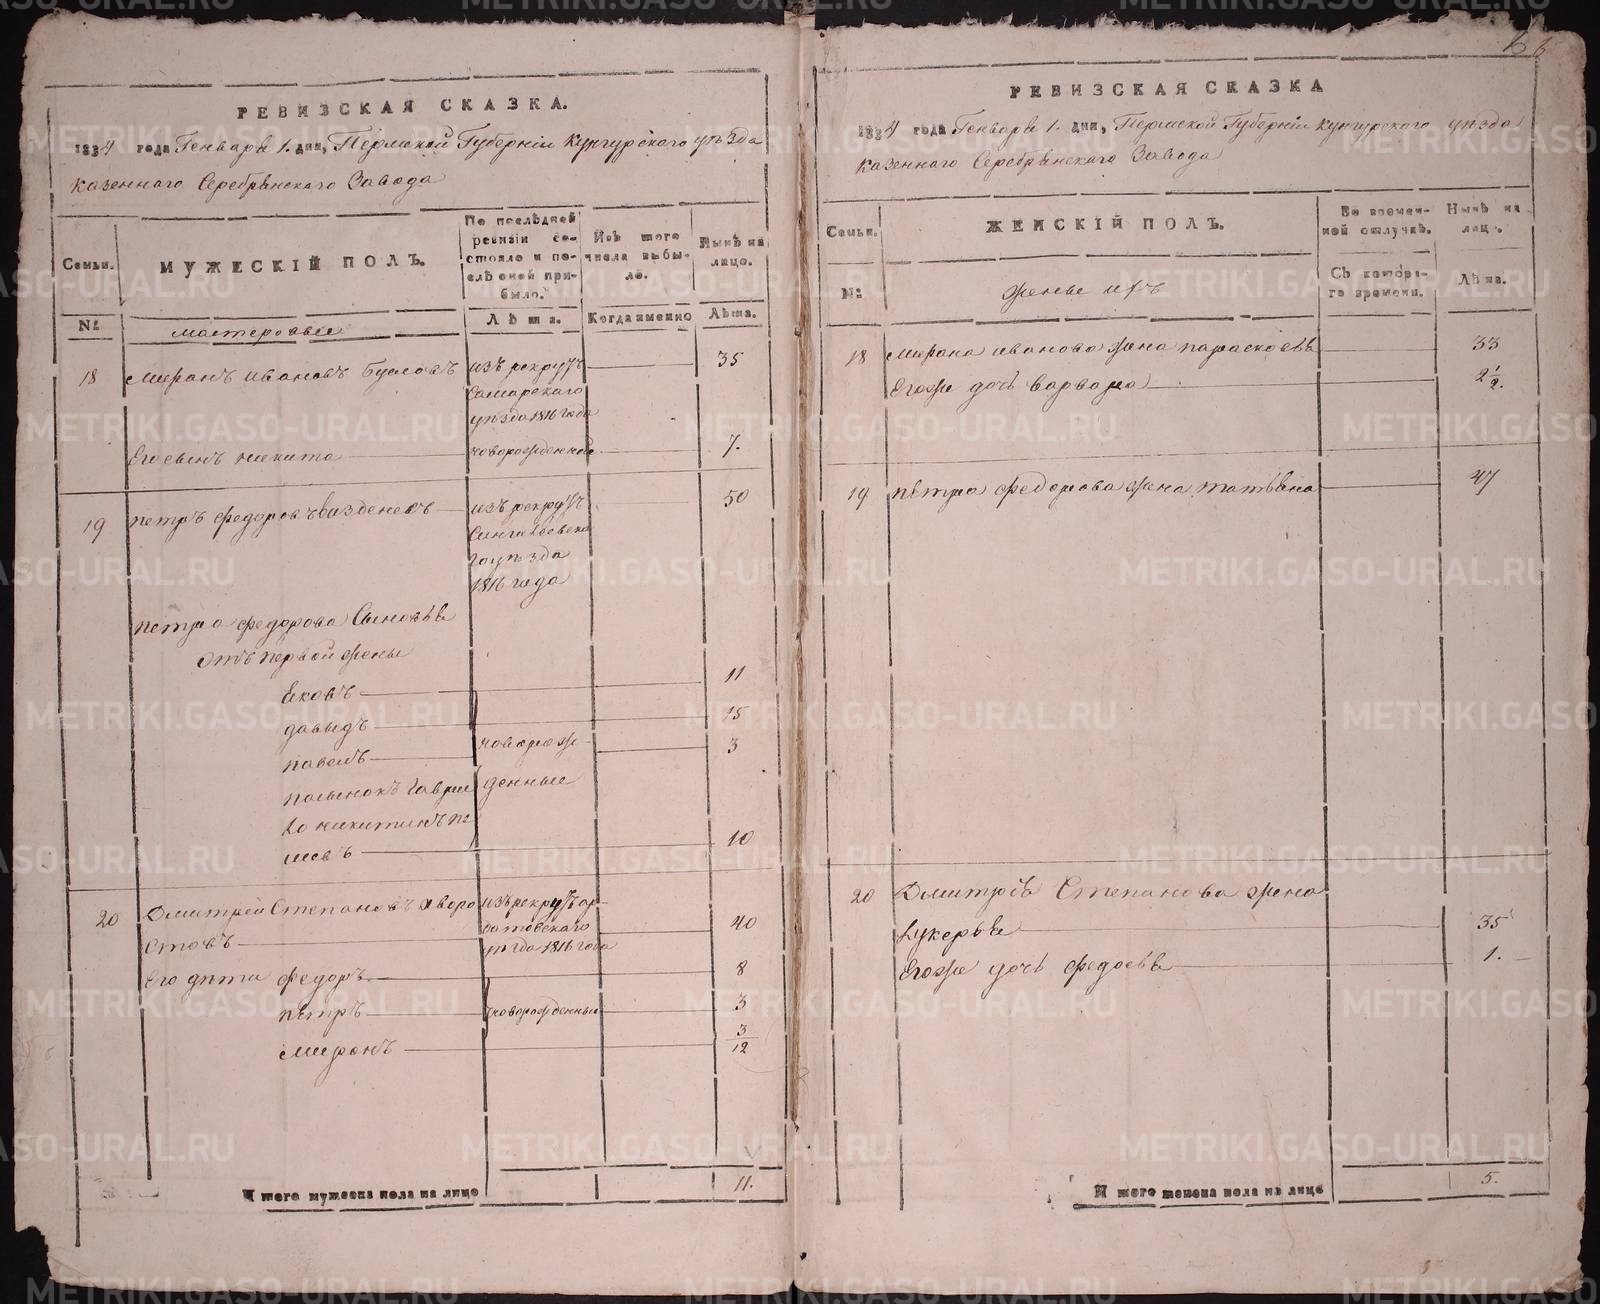 РЕВИЗСКАЯ СКАЗКА.
1834 года Генваря 1. дня, Пермской Губернiи кунгурского уѣзда
казенного Серебрянского Завода
Семьи.
МУЖЕСКIЙ ПОЛЪ.
По послѣдней ревизiи состояло и послѣ оной прибыло.
Изъ того числа выбыло.
Нынѣ на лицо.
№
мастеровые
Лѣта.
Когда именно
Лѣта.
18
Миронъ ивановъ
изъ рекрутъ
35
Самарского
уѣзда 1816 года
Егосынъ никита
новорожденной
7.
19
петръ федоровъ
изъ рекрутъ
50
уѣзда
1816 года
петра федорова Сыновья
отъ первой жены
Яковъ
11
давыдъ
15
павелъ
новорож
3
пасынокъ Гаври
денные
ло никитинъ
10
20
Дмитрей Степановъ хворо
изъ рекрутъ ар
стовъ
датовского
40
уѣзда 1816 года
Его дѣти федоръ
8
петръ
новорожденные
3
миронъ
3/12
Итого мужеска пола на лицо
11.
6
РЕВИЗСКАЯ СКАЗКА
1834 года Генваря 1. дня, Пермской Губернiи кунгурского уѣзда
казенного Серебрянского Завода
Семьи.
ЖЕНСКIЙ ПОЛЪ.
Во временной отлучкѣ.
Нынѣ на лицо.
№
жены ихъ
Съ котораго времени.
Лѣта.
18
Мирона иванова жена парасковья
33
Егоже дочь варвара
2 1/2.
19
петра федорова жена татьяна
47
20
Дмитрея Степанова жена
лукерья
35
Егоже дочь федосья
1.
Итого женска пола на лицо
5.
METRIKI.GASO-URAL.RU